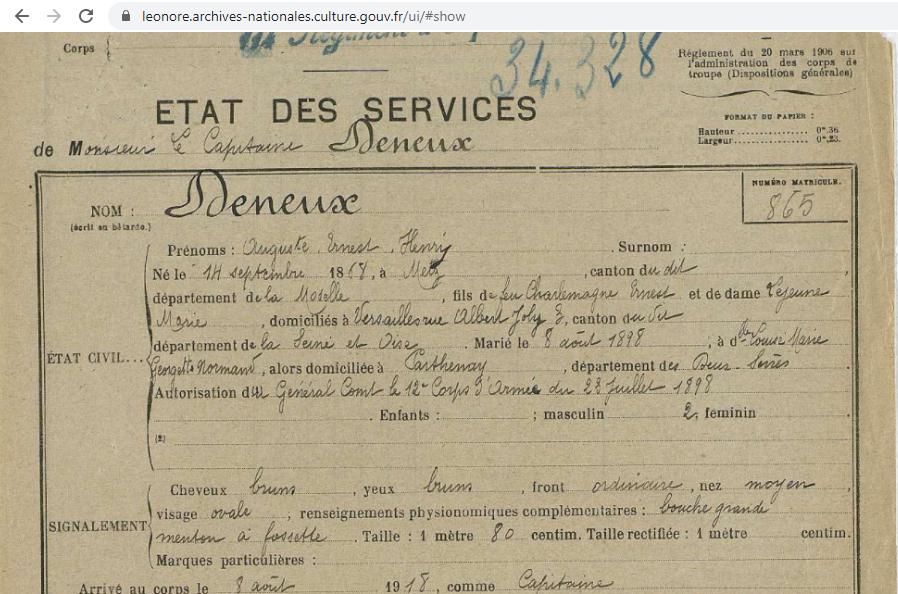 leonore.archives-nationales.culture.gouv.fr/ui/#show
Corps
34.328
Règlement du 20 mars 1906 sur
l'administration des corps de
troupe (Dispositions générales)
ETAT DES SERVICES
FORMAT DU PAPIER :
Hauteur ................ 0m,36.
Largeur ................ 0m,23.
de Monsieur le Capitaine Deneux
NUMÉRO MATRICULE.
865
NOM : Deneux
(écrit en bâtarde.)
Prénoms : Auguste Ernest Henry . Surnom :
Né le 14 septembre 1868, à Metz , canton du dit
département de la Moselle , fils de feu Charlemagne Ernest et de dame Lejeune
Marie , domiciliés à Versailles rue Albert Joly , canton du dit
département de la Seine et Oise. Marié le 8 août 1898 ; à dlle Louise Marie
ÉTAT CIVIL... Georgette Normand, alors domiciliée à Parthenay , département des Deux-Sèvres
Autorisation du Général Comt le 12e Corps d'Armée du 28 Juillet 1898
. Enfants : ; masculin 2, feminin .
(2)
Cheveux bruns , yeux bruns , front ordinaire , nez moyen ,
visage ovale , renseignements physionomiques complémentaires : bouche grande
SIGNALEMENT menton à fossette . Taille : 1 mètre 80 centim. Taille rectifiée : 1 mètre centim.
Marques particulières :
Arrivé au corps le 8 août 1918 , comme Capitaine